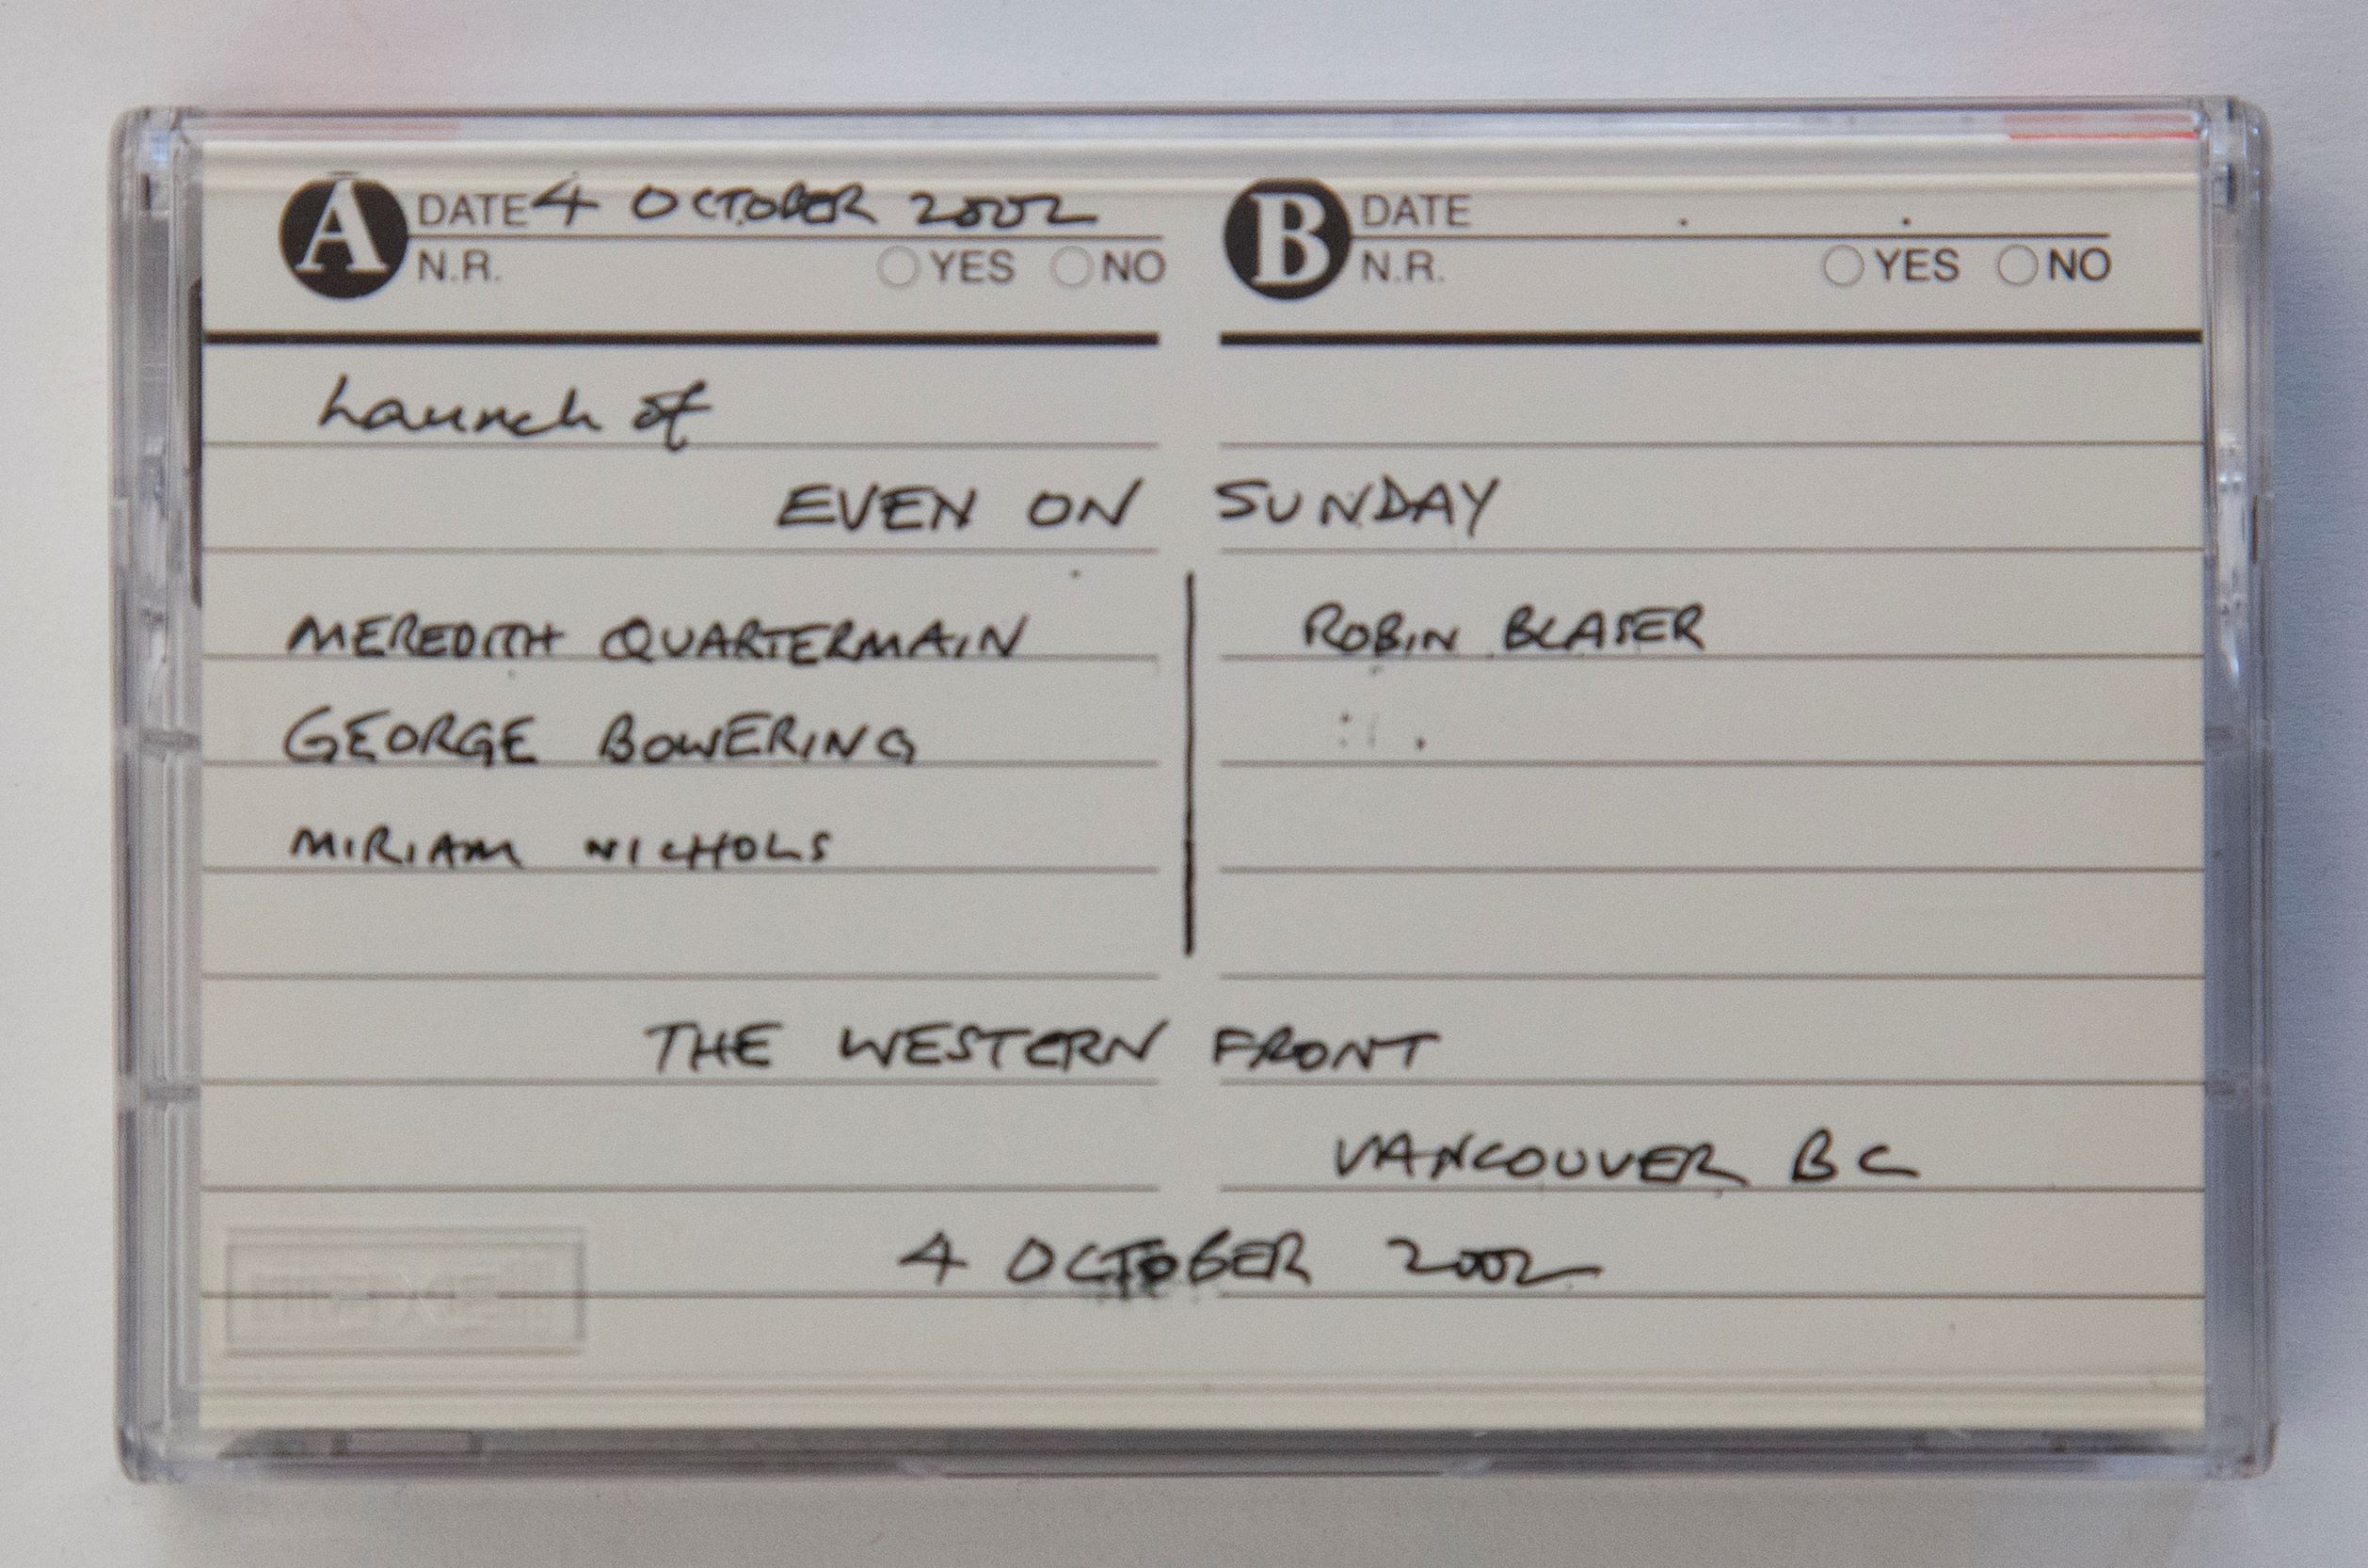 A DATE 4 OCTOBER 2002
N.R. YES NO
B DATE
N.R. YES NO
Launch of
EVEN ON SUNDAY
MEREDITH QUARTERMAIN
GEORGE BOWERING
MIRIAM NICHOLS
ROBIN BLASER
THE WESTERN FRONT
VANCOUVER BC
4 OCTOBER 2002
maxell